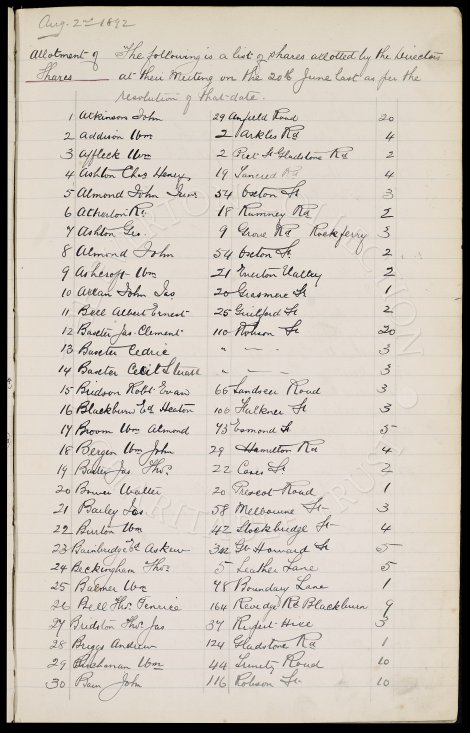 Aug. 2nd 1892
Allotment of Shares
The following is a list of shares allotted by the Directors
at their Meeting on the 20th June last as per the
resolution of that date.
1 Atkinson John 29 Anfield Road 20
2 Addison Wm 2 Arkles Rd 4
3 Affleck Wm 2 Gladstone Rd 2
4 Ashton Chas Henry 19 Tancred Rd 4
5 Almond John Junr 54 Oxton St 3
6 Atherton Rd 18 Rumney Rd 2
7 Ashton Geo. 9 Grove Rd Rockferry 3
8 Almond John 54 Oxton St 2
9 Ashcroft Wm 21 Everton Valley 2
10 John Jas 20 Grasmere St 1
11 Bell Albert Ernest 25 Guilford St 2
12 Baxter Jas Clement 110 Robson St 20
13 Baxter Cedric " — " — 3
14 Baxter Cecil Stuart " — " — 3
15 Bridson Robt Evan 66 Landseer Road 3
16 Blackburn Ed Heaton 106 Falkner St 3
17 Broom Wm Almond 73 Esmond St 5
18 Bergen Wm John 29 Hamilton Rd 4
19 Jas Thos 22 Cases St 2
20 Bower Walter 20 Prescot Road 1
21 Bailey Jas 58 Melbourne St 3
22 Burton Wm 42 Stockbridge St 4
23 Bainbridge Ed Askew Gt Howard St 5
24 Beckingham Thos 5 Leather Lane 5
25 Balmer Wm 78 Boundary Lane 1
26 Bell Thos Fenrice 164 Revidge Rd Blackburn 9
27 Bridston Thos Jas 37 Rupert Hill 3
28 Briggs Andrew 124 Gladstone Rd 1
29 Buchanan Wm 44 Trinity Road 10
30 Bain John 116 Robson St 10